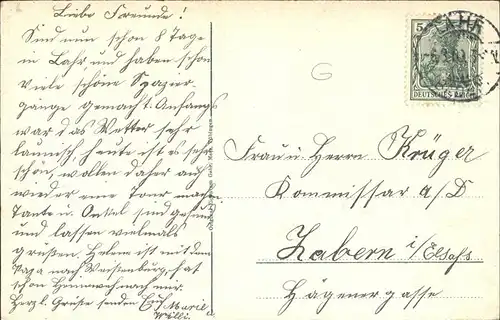 Liebe Freunde!
Sind nun schon 8 Tage
in Lahr und haben schon
viele schöne Spazier-
gänge gemacht. Anfangs
war das Wetter sehr
launisch, heute ist es sehr
schön, wollen daher auch
wieder eine Tour machen
Tante u. Onkel sind gesund
und lassen vielmals
grüßen. Helene ist mit dem
Tag nach Weissenburg, hat
schon Heimweh nach mir.
Herzl. Grüße senden Marie
Willi.
Frau u Herrn Krüger
Kommissar a/D
Zabern i/Elsaß
Hägenergasse
5
DEUTSCHES REICH
LAHR
G